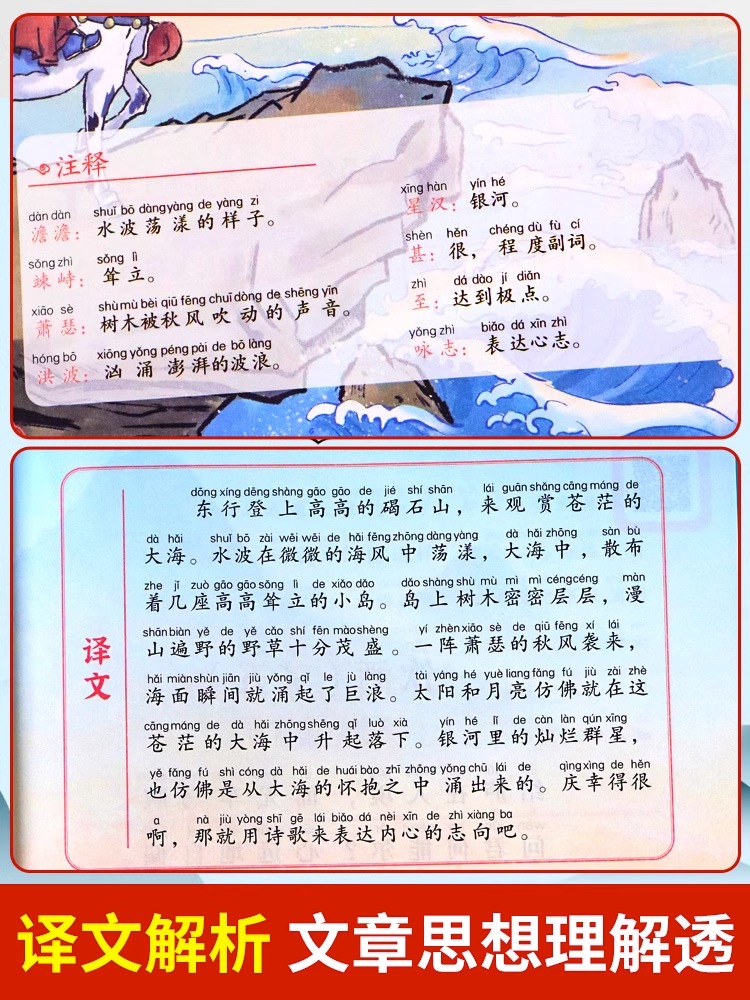 注释
dàn dàn shuǐ bō dàng yàng de yàng zi
澹澹：水波荡漾的样子。
sǒng zhì sǒng lì
竦峙：耸立。
xiāo sè shù mù bèi qiū fēng chuī dòng de shēng yīn
萧瑟：树木被秋风吹动的声音。
hóng bō xiōng yǒng péng pài de bō làng
洪波：汹涌澎湃的波浪。
xīng hàn yín hé
星汉：银河。
shèn hěn chéng dù fù cí
甚：很，程度副词。
zhì dá dào jí diǎn
至：达到极点。
yǒng zhì biǎo dá xīn zhì
咏志：表达心志。
译文
dōng xíng dēng shàng gāo gāo de jié shí shān lái guān shǎng cāng máng de
东行登上高高的碣石山，来观赏苍茫的
dà hǎi shuǐ bō zài wēi wēi de hǎi fēng zhōng dàng yàng dà hǎi zhōng sàn bù
大海。水波在微微的海风中荡漾，大海中，散布
zhe jǐ zuò gāo gāo sǒng lì de xiǎo dǎo dǎo shàng shù mù mì mì céng céng màn
着几座高高耸立的小岛。岛上树木密密层层，漫
shān biàn yě de yě cǎo shí fēn mào shèng yí zhèn xiāo sè de qiū fēng xí lái
山遍野的野草十分茂盛。一阵萧瑟的秋风袭来，
hǎi miàn shùn jiān jiù yǒng qǐ le jù làng tài yáng hé yuè liang fǎng fú jiù zài zhè
海面瞬间就涌起了巨浪。太阳和月亮仿佛就在这
cāng máng de dà hǎi zhōng shēng qǐ luò xià yín hé lǐ de càn làn qún xīng
苍茫的大海中升起落下。银河里的灿烂群星，
yě fǎng fú shì cóng dà hǎi de huái bào zhī zhōng yǒng chū lái de qìng xìng de hěn
也仿佛是从大海的怀抱之中涌出来的。庆幸得很
a nà jiù yòng shī gē lái biǎo dá nèi xīn de zhì xiàng ba
啊，那就用诗歌来表达内心的志向吧。
译文解析 文章思想理解透